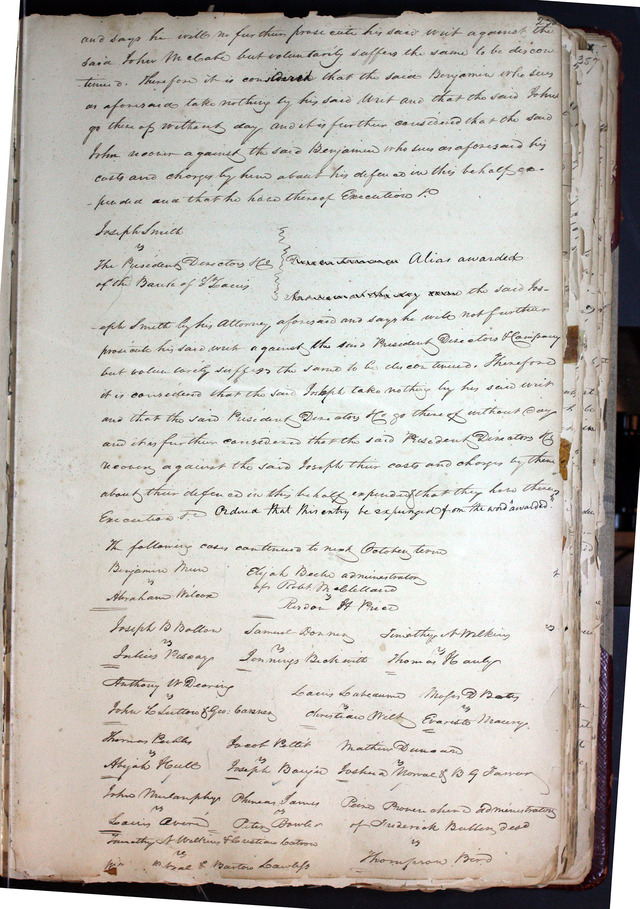 and says he will no further prosecute his said writ against the
said John McCabe but voluntarily suffers the same to be discon
tinued. Therefore it is considered that the said Benjamin who sues
as aforesaid take nothing by his said writ and that the said John
go thereof without day and it is further considered that the said
John recover against the said Benjamin who sues as aforesaid his
costs and charges by him about his defence in this behalf ex-
-pended and that he have thereof Execution &c
Joseph Smith
vs
The President Directors &c
of the Bank of St Louis
Alias awarded
the said Jos-
-eph Smith by his Attorney aforesaid and says he will not further
prosecute his said writ against the said President Directors & Company
but voluntarily suffers the same to be discontinued. Therefore
it is considered that the said Joseph take nothing by his said writ
and that the said President Directors &c go thereof without day
and it is further considered that the said President Directors &c
recover against the said Joseph their costs and charges by them
about their defence in this behalf expended & that they have thereof
Execution &c Ordered that this entry be expunged from the word "awarded"
The following cases continued to next October term
Benjamin
vs
Abraham Wilcox
Elijah Beebe administrator
of Robt McClelland
vs
Risdon H Price
Joseph B Bolton
vs
Julius
Samuel
vs
Jennings Beckwith
Timothy N Wilkins
vs
Thomas Hanly
Anthony W Dearing
vs
John L Sutton & Geo: Casner
Louis Labeaume
vs
Christian Wilt
Moses D Bates
vs
Evariste Maury.
Thomas
vs
Abijah Hull
Jacob Pettit
vs
Joseph
Mathew Duncan
vs
Joshua & B G Farrar
John Mulanphy
vs
Louis
Phineas James
vs
Peter Bowler
administrator
of Frederick decd
vs
Thompson Bird
Timothy N Wilkins & Christian
vs
& Barton Lawless
357